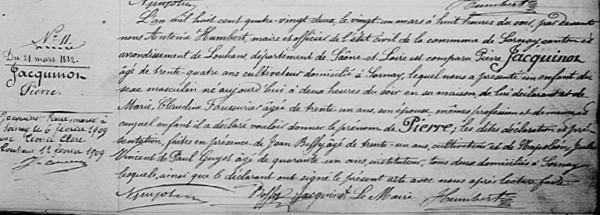 Humbert
N° 11.
Du 21 mars 1882.
Jacquinot
Pierre.
Jacquinot Pierre marié à
Sornay le 6 février 1909
Léonie Claire
Louhans 12 février 1909
L'an mil huit cent quatre-vingt-deux, le vingt-un mars à huit heures du soir, par devant
nous Antoine Humbert, maire et officier de l'état civil de la commune de Sornay, canton et
arrondissement de Louhans, département de Saône-et-Loire est comparu Pierre Jacquinot
âgé de trente-quatre ans cultivateur domicilié à Sornay, lequel nous a présenté un enfant du
sexe masculin né aujourd'hui à deux heures du soir en sa maison de lui déclarant et de
Marie Claudine âgée de trente-un ans, son épouse, mêmes profession et demeure
auquel enfant il a déclaré vouloir donner le prénom de Pierre; les dites déclaration et pré-
sentation, faites en présence de Jean Buffy âgé de trente-un ans, cultivateur et de Napoléon Jules
Vincent de Paul Guyot âgé de quarante un ans, instituteur, tous deux domiciliés à Sornay
lesquels, ainsi que le déclarant ont signé le présent acte avec nous après lecture faite.
Jacquinot Le Maire Humbert